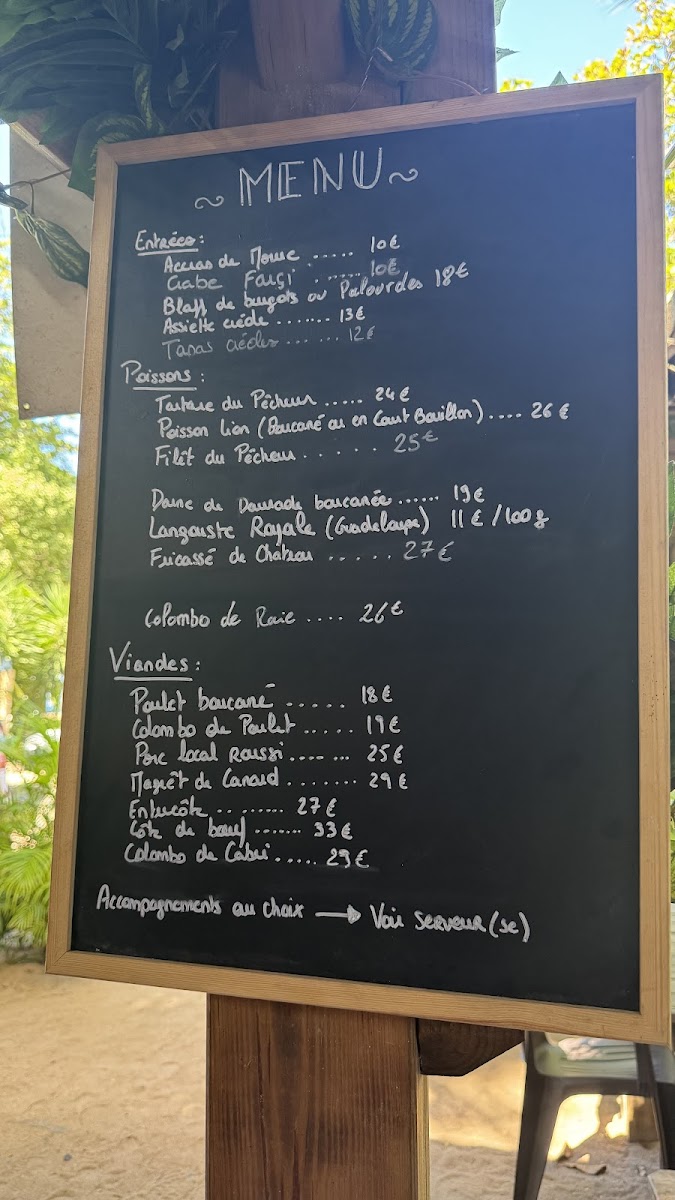 ~ MENU ~
Entrées :
Accras de Morue ...... 10€
Crabe Farçi ....... 10€
Blaff de burgots ou Palourdes 18€
Assiette créole ....... 13€
Tapas créoles ...... 12€
Poissons :
Tartare du Pêcheur ..... 24€
Poisson Lion (Boucané ou en Court Bouillon) .... 26€
Filêt du Pêcheur ...... 25€
Darne de Daurade boucanée ...... 19€
Langouste Royale (Guadeloupe) 11€/100g
Fricassé de Chatrou ..... 27€
Colombo de Raie .... 26€
Viandes :
Poulet boucané ..... 18€
Colombo de Poulet ..... 19€
Porc local roussi ....... 25€
Magrêt de Canard ....... 29€
Entrecôte ......... 27€
Côte de bœuf ....... 33€
Colombo de Cabri ..... 29€
Accompagnements au choix → Voir serveur(se)